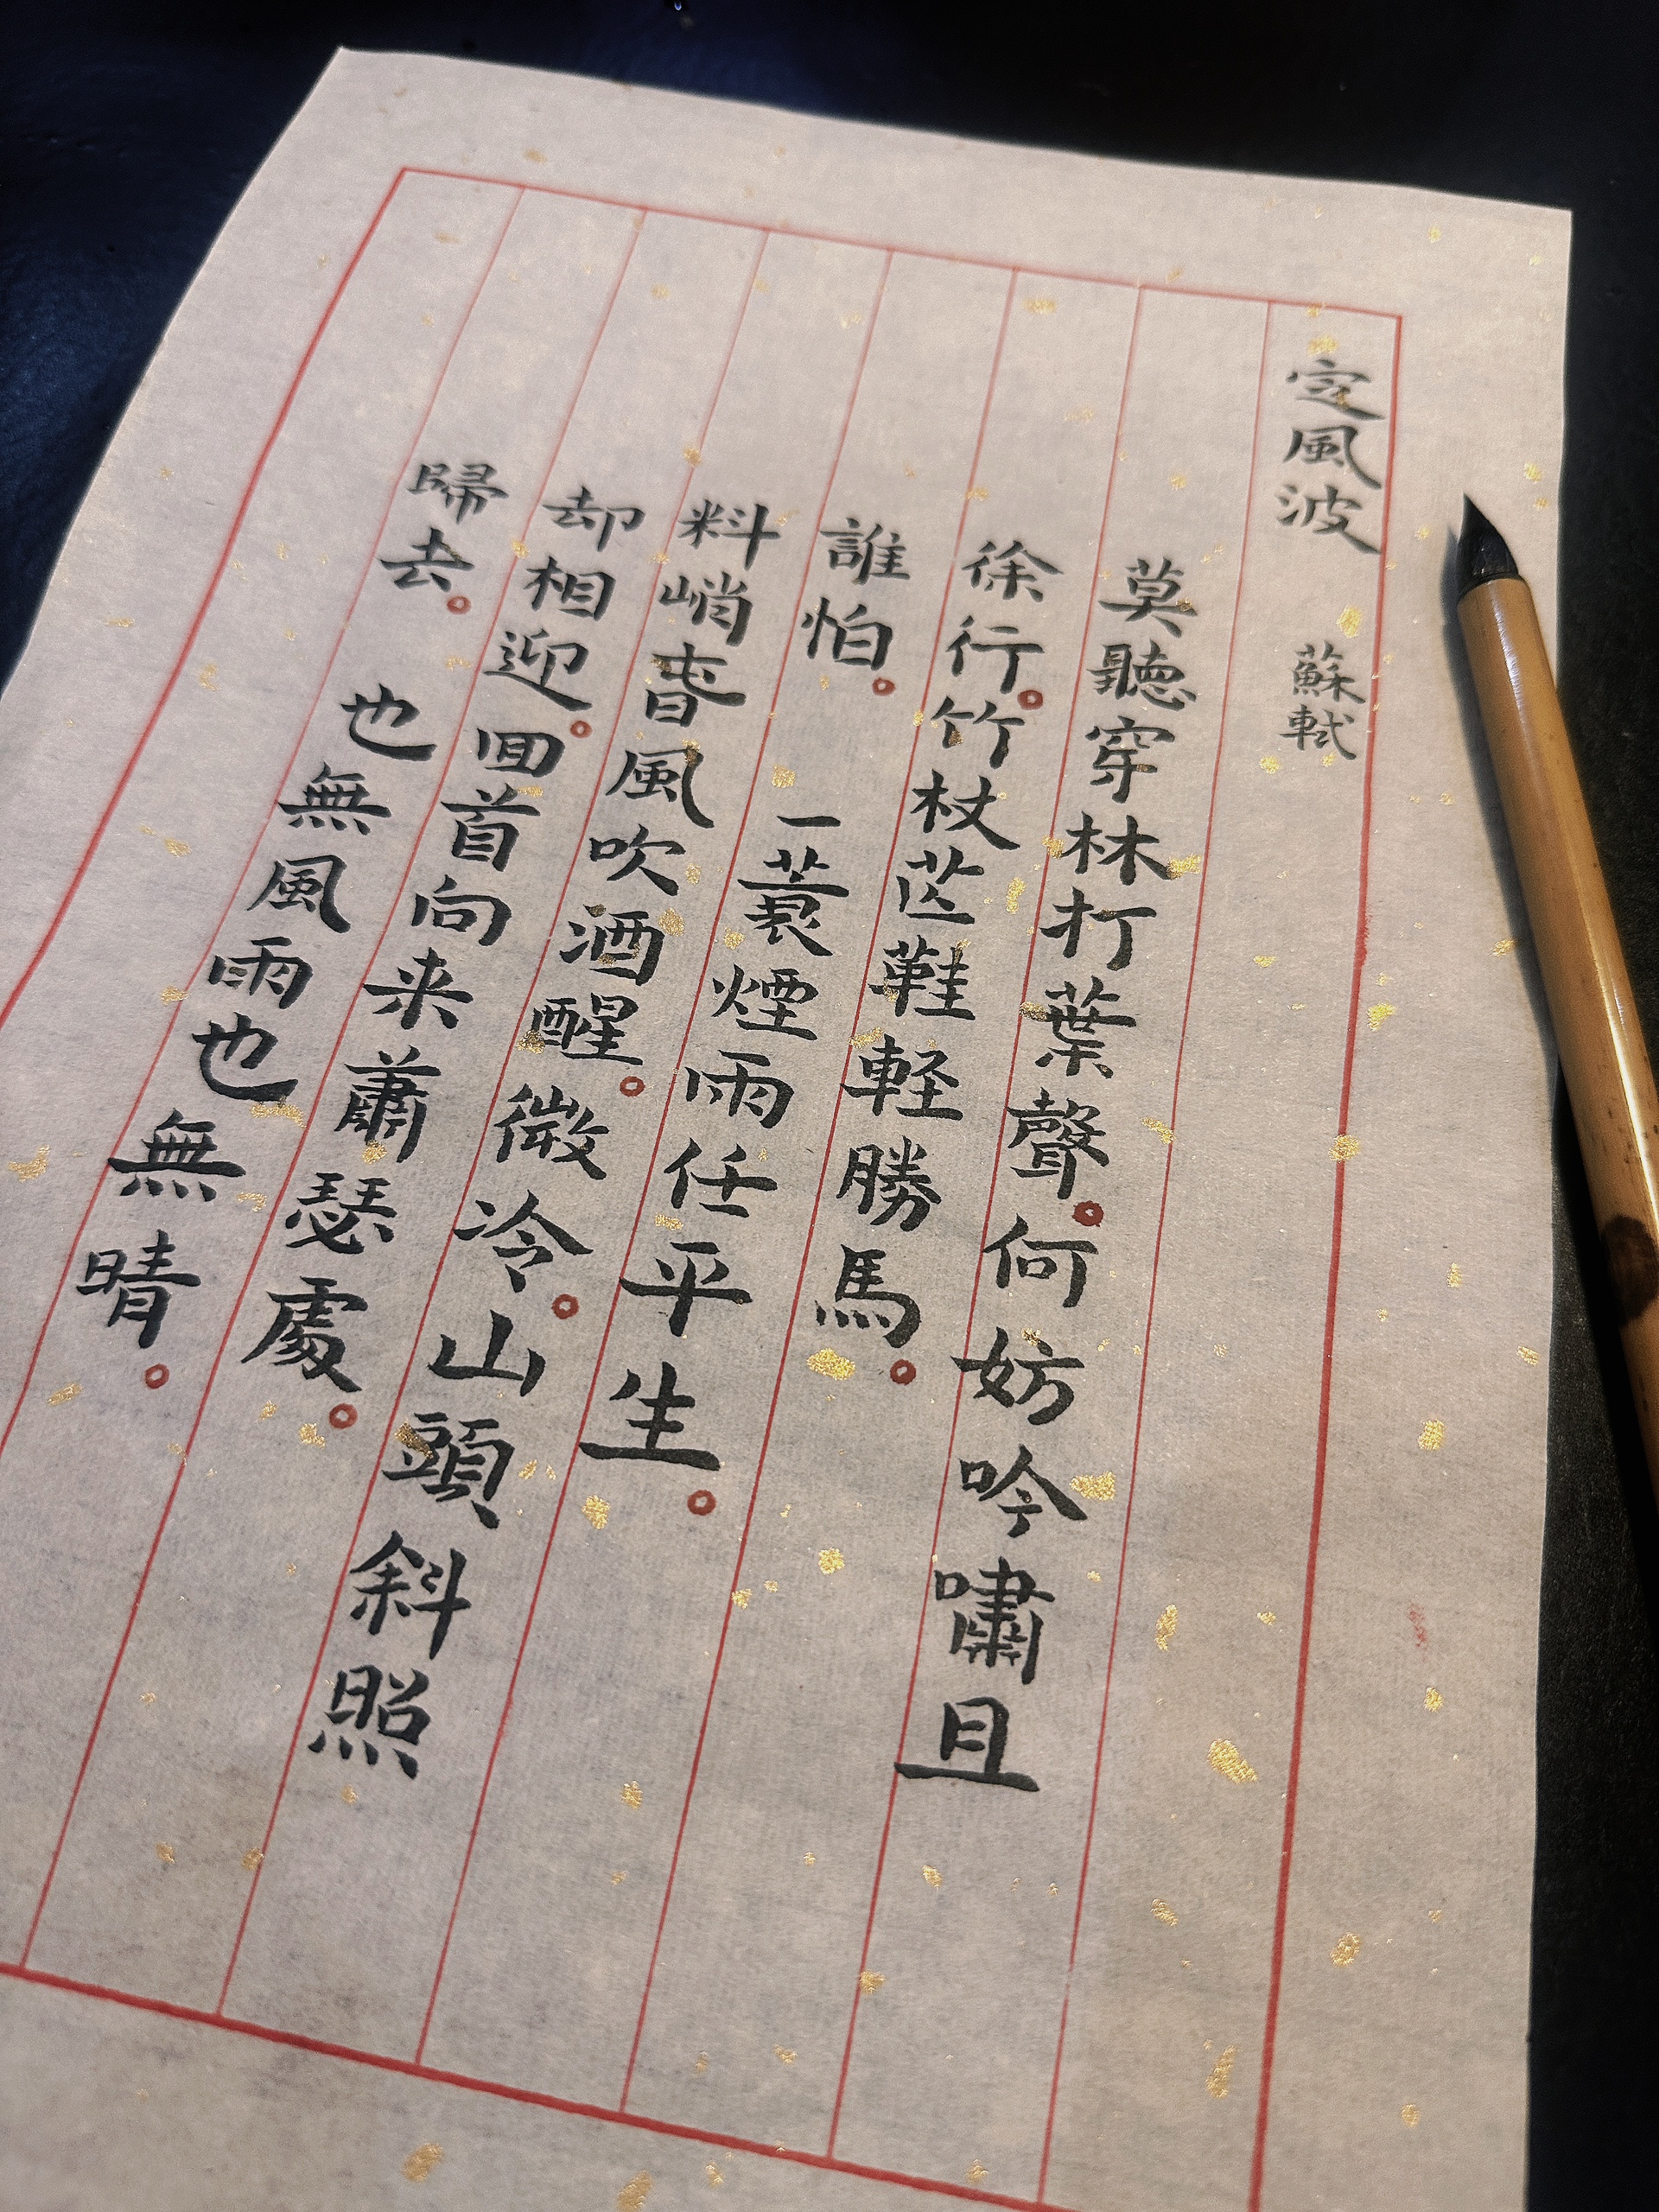 定風波 蘇軾
莫聽穿林打葉聲。何妨吟嘯且
徐行。竹杖芒鞋輕勝馬。
誰怕。一蓑煙雨任平生。
料峭春風吹酒醒。微冷。山頭斜照
却相迎。回首向来蕭瑟處。
歸去。也無風雨也無晴。